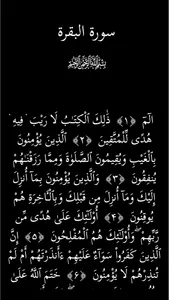 سورة البقرة
بِسْمِ اللَّهِ الرَّحْمَٰنِ الرَّحِيمِ
الٓمٓ ﴿١﴾ ذَٰلِكَ ٱلْكِتَٰبُ لَا رَيْبَ ۛ فِيهِ ۛ
هُدًى لِّلْمُتَّقِينَ ﴿٢﴾ ٱلَّذِينَ يُؤْمِنُونَ
بِٱلْغَيْبِ وَيُقِيمُونَ ٱلصَّلَوٰةَ وَمِمَّا رَزَقْنَٰهُمْ
يُنفِقُونَ ﴿٣﴾ وَٱلَّذِينَ يُؤْمِنُونَ بِمَآ أُنزِلَ
إِلَيْكَ وَمَآ أُنزِلَ مِن قَبْلِكَ وَبِٱلْءَاخِرَةِ هُمْ
يُوقِنُونَ ﴿٤﴾ أُو۟لَٰٓئِكَ عَلَىٰ هُدًى مِّن
رَّبِّهِمْ ۖ وَأُو۟لَٰٓئِكَ هُمُ ٱلْمُفْلِحُونَ ﴿٥﴾ إِنَّ
ٱلَّذِينَ كَفَرُوا۟ سَوَآءٌ عَلَيْهِمْ ءَأَنذَرْتَهُمْ أَمْ لَمْ
تُنذِرْهُمْ لَا يُؤْمِنُونَ ﴿٦﴾ خَتَمَ ٱللَّهُ عَلَىٰ